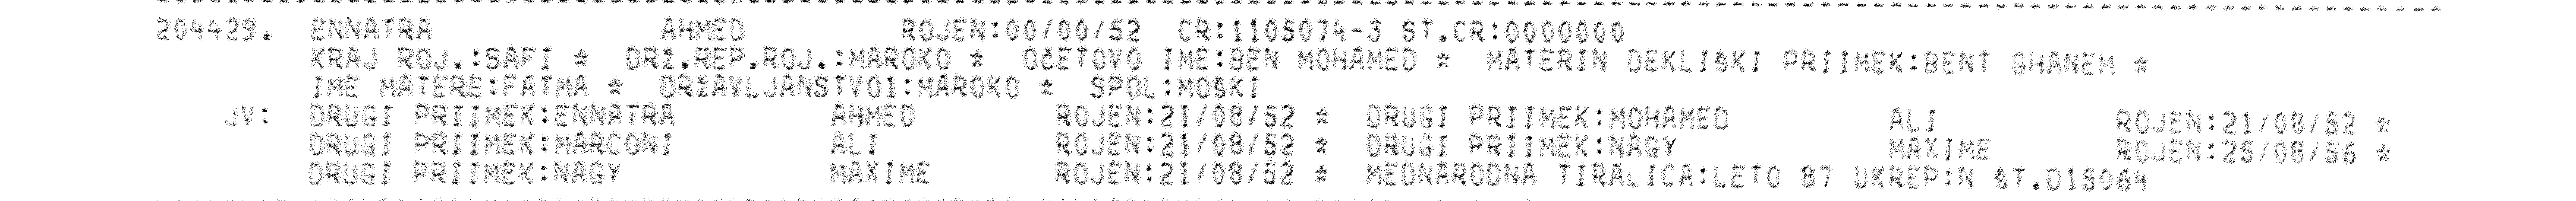 204429. ENNATRA AHMED ROJEN:00/00/52 CR:1105074-3 ST.CR:0000000
KRAJ ROJ.:SAFI * DRŽ.REP.ROJ.:MAROKO * OČETOVO IME:BEN MOHAMED * MATERIN DEKLIŠKI PRIIMEK:BENT GHANEM *
IME MATERE:FATMA * DRŽAVLJANSTVO1:MAROKO * SPOL:MOŠKI
JV: DRUGI PRIIMEK:ENNATRA AHMED ROJEN:21/08/52 * DRUGI PRIIMEK:MOHAMED ALI ROJEN:21/08/52 *
DRUGI PRIIMEK:MARCONI ALI ROJEN:21/08/52 * DRUGI PRIIMEK:NAGY MAXIME ROJEN:25/08/56 *
DRUGI PRIIMEK:NAGY MAXIME ROJEN:21/08/52 * MEDNARODNA TIRALICA:LETO 87 UKREP:N ŠT.D15064